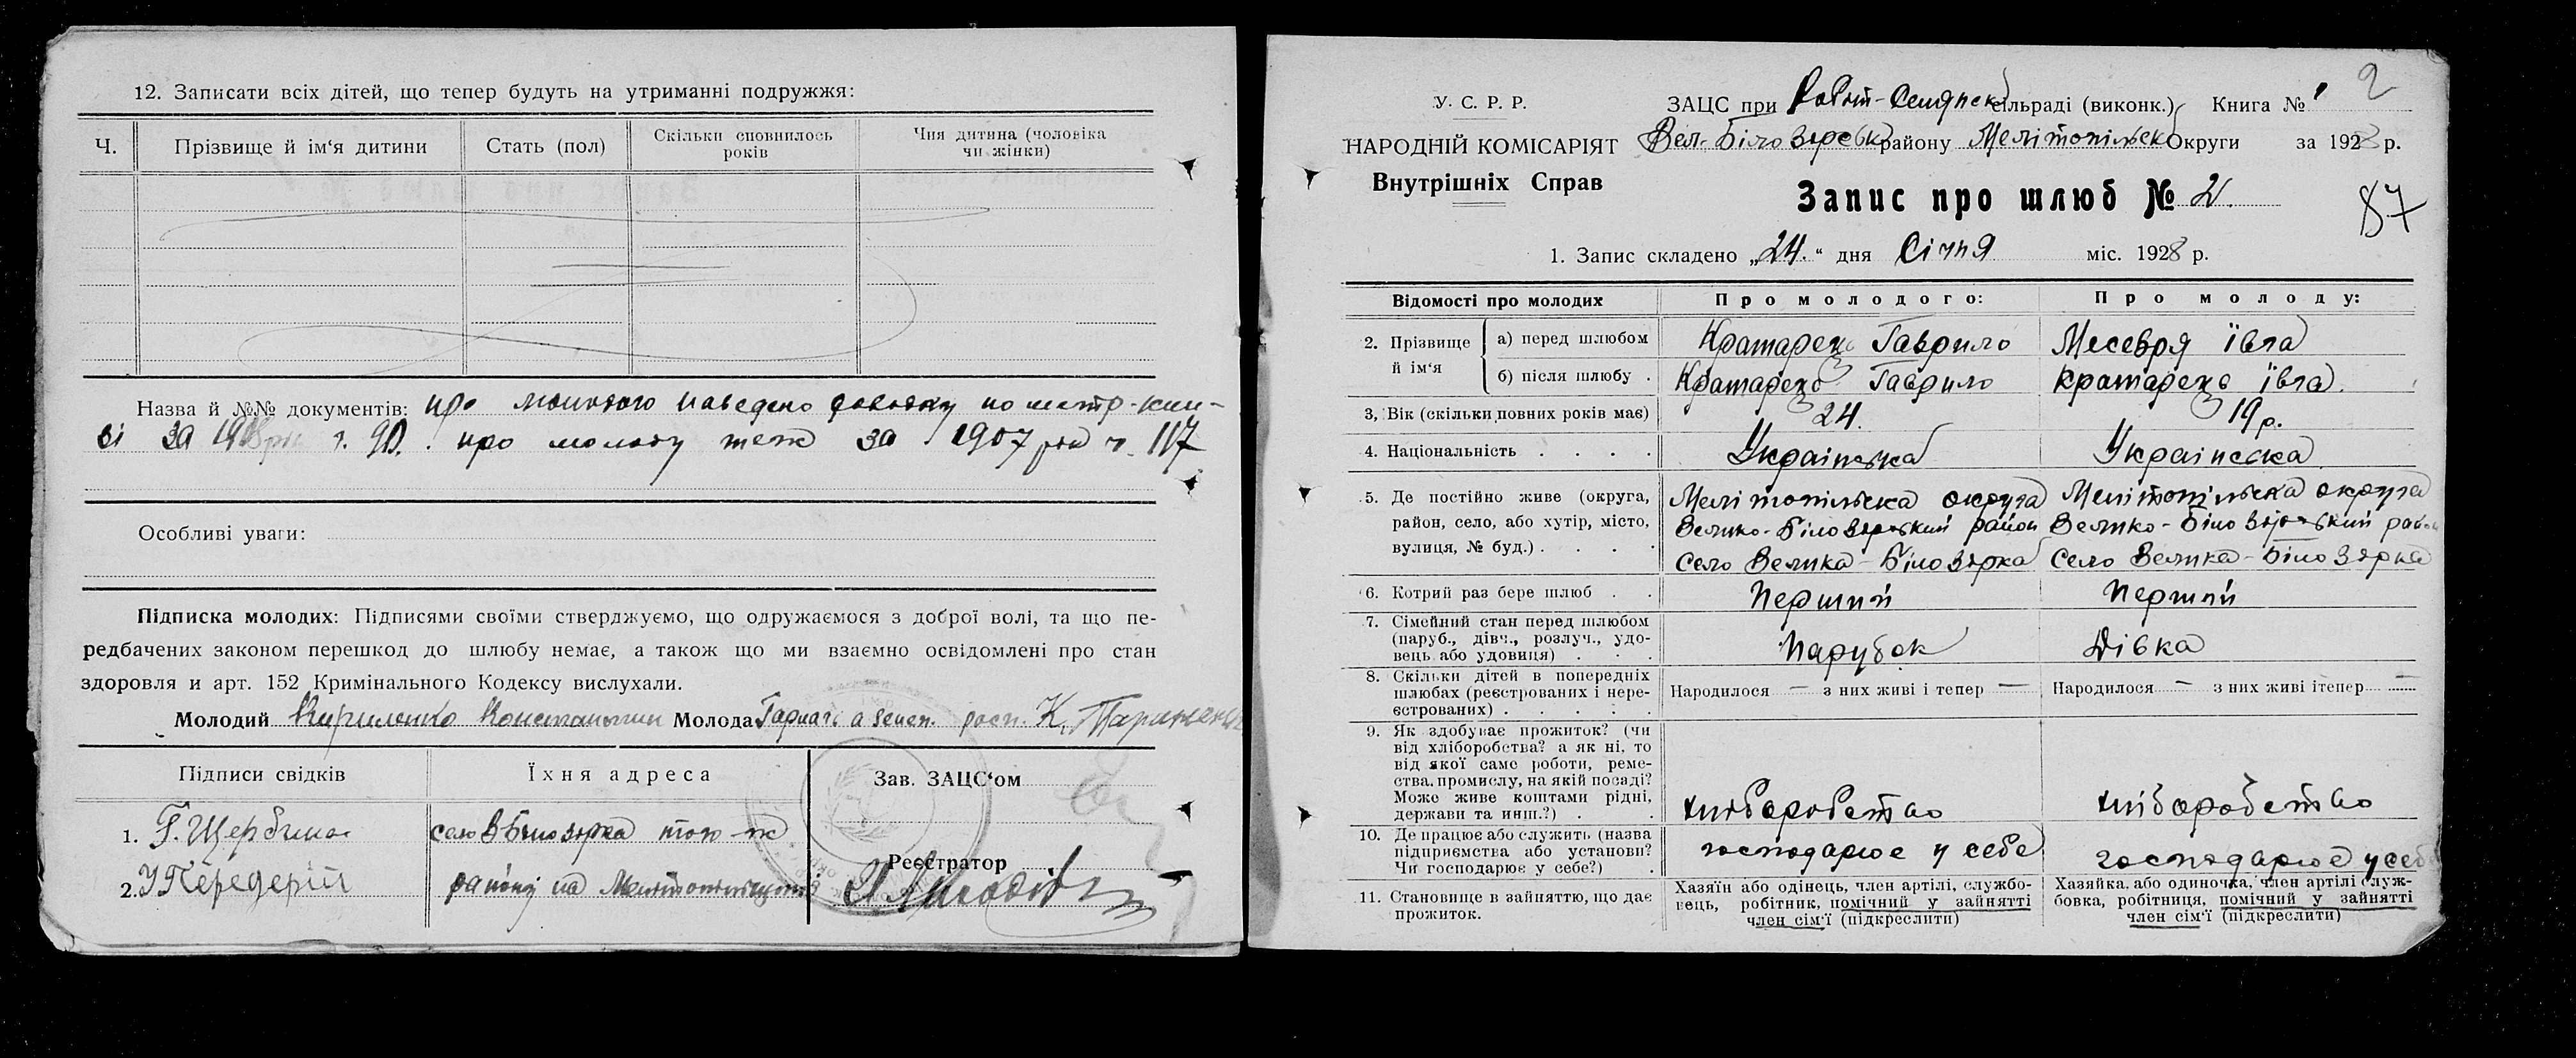 12. Записати всіх дітей, що тепер будуть на утриманні подружжя:
Ч. Прізвище й ім‘я дитини Стать (пол) Скільки сповнилось років Чия дитина (чоловіка чи жінки)
Назва й №№ документів: про молодого наведено довідку по метр-кни-
зі за ч. 90. про молоду теж за 1907 рік ч. 117
Особливі уваги:
Підписка молодих: Підписями своїми стверджуємо, що одружаємося з доброї волі, та що пе-
редбачених законом перешкод до шлюбу немає, а також що ми взаємно освідомлені про стан
здоровля и арт. 152 Кримінального Кодексу вислухали.
Молодий Кириленко Константин Молода К.
Підписи свідків Їхня адреса Зав. ЗАЦС‘ом
1. Г. Щербина село В Білозярка того-ж
Реєстратор
2. Передерій району на Мелітопільщині
У. С. Р. Р.
НАРОДНІЙ КОМІСАРІЯТ
Внутрішніх Справ
ЗАЦС при Робіт-Селянськ сільраді (виконк.) Книга № 1 2
Вел. Білозярськ району Мелітопільськ Округи за 1928 р.
Запис про шлюб № 2.
87
1. Запис складено „24.“ дня Січня міс. 1928 р.
Відомості про молодих Про молодого: Про молоду:
2. Прізвище й ім‘я а) перед шлюбом Кратаренко Гаврило Месевря Ївга
б) після шлюбу Кратаренко Гаврило Кратаренко Ївга
3. Вік (скільки повних років має) 24. 19 р.
4. Національність Українська Українська
5. Де постійно живе (округа, район, село, або хутір, місто, вулиця, № буд.)
Мелітопільська округа Мелітопільська округа
Велико-Білозярський район Велико-Білозярський район
село Велика-Білозярка село Велика-Білозярка
6. Котрий раз бере шлюб Перший Перший
7. Сімейний стан перед шлюбом (паруб., дівч., розлуч., удовець або удовиця) Парубок Дівка
8. Скільки дітей в попередніх шлюбах (реєстрованих і нереєстрованих) Народилося — з них живі і тепер — Народилося — з них живі ітепер —
9. Як здобуває прожиток? (чи від хліборобства? а як ні, то від якої саме роботи, ремества, промислу, на якій посаді? Може живе коштами рідні, держави та инш.?) хліборобство хліборобство
10. Де працює або служить (назва підприємства або установи? Чи господарює у себе?) господарює у себе господарює у себе
11. Становище в зайняттю, що дає прожиток.
Хазяїн або одінець, член артілі, службовець, робітник, помічний у зайнятті член сім‘ї (підкреслити)
Хазяйка, або одиночка, член артілі службовка, робітниця, помічний у зайнятті член сім‘ї (підкреслити)